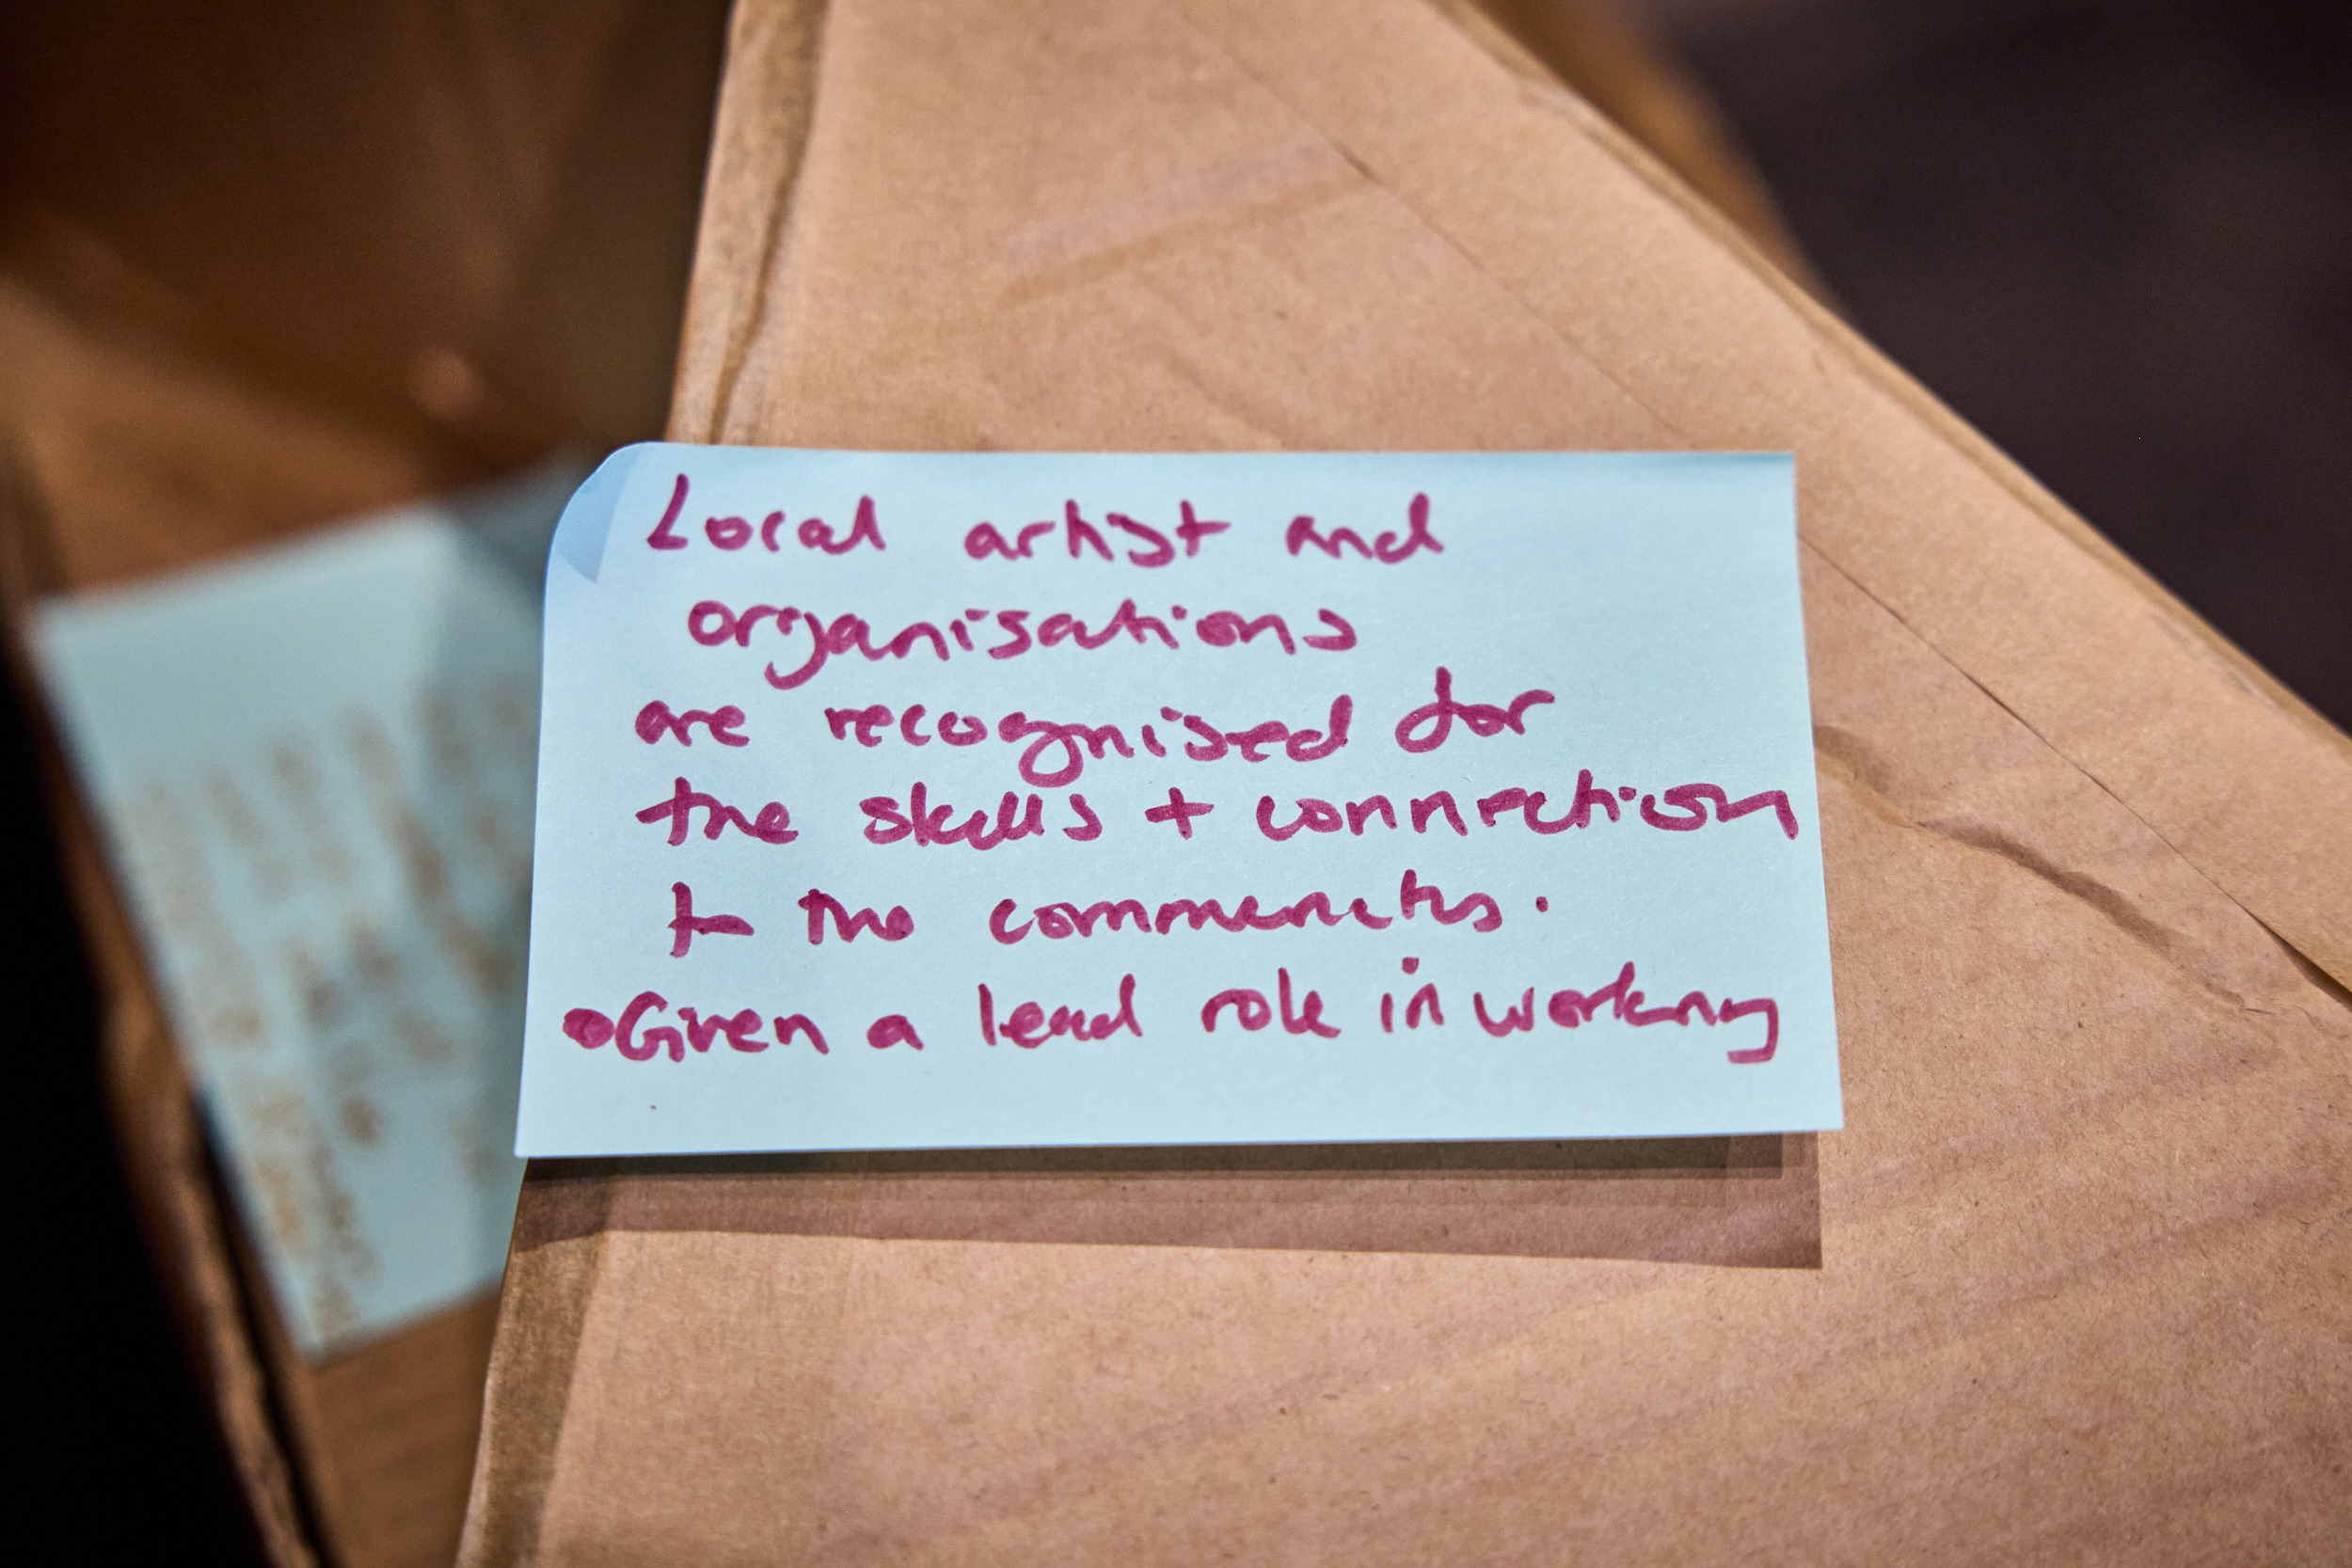 Local artist and
organisations
are recognised for
the skills + connection
to the communites.
•Given a lead role in working